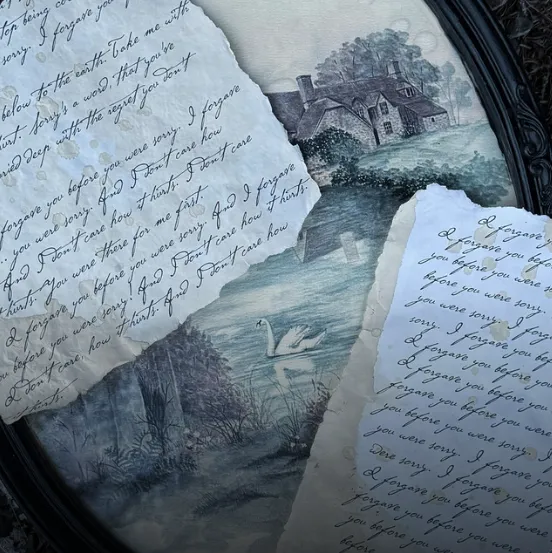 top being co
sorry. I forgave you
below to the earth. Take me with
hurt. Sorry's a word, that you've
deep, with the regret you don't
forgave you before you were sorry. I forgave
you were sorry. And I Don't care how
And I Don't care how it hurts. I Don't care
hurts. You were there for me first.
I forgave you before you were sorry. And I forgave
you before you were sorry. And I Don't care how it hurts.
I Don't care, how it hurts. And I Don't care how
hurts.
I forgave
I forgave you before
you before you were sorry.
before you were sorry.
you were sorry.
sorry. I forgave you
I forgave you before
I forgave you before
forgave you before you
you before you were sorry
you were sorry. I
Were sorry. I forgave
I forgave you before you
forgave you before you
you before you were
before